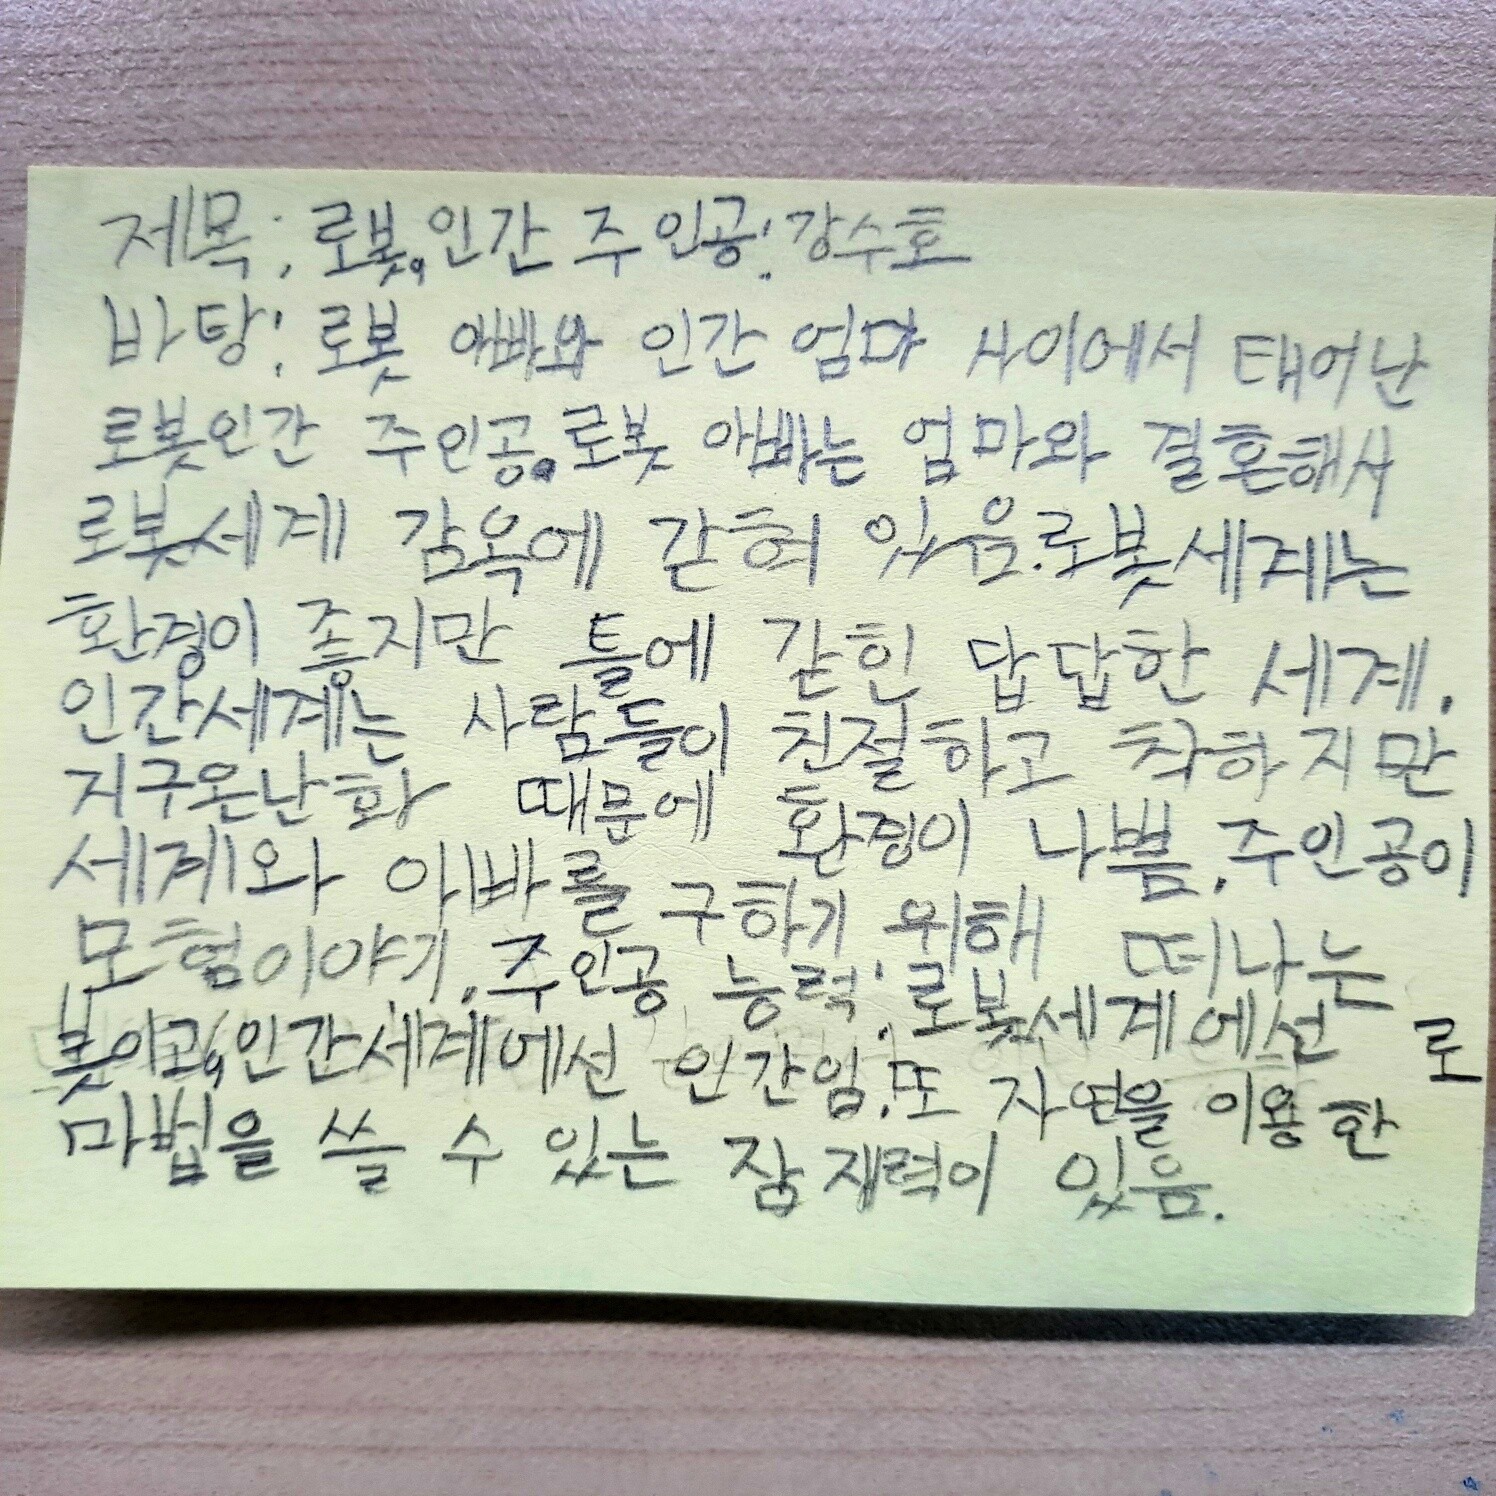 제목: 로봇, 인간 주인공: 강수호
바탕: 로봇 아빠와 인간 엄마 사이에서 태어난
로봇인간 주인공. 로봇 아빠는 엄마와 결혼해서
로봇세계 감옥에 갇혀 있음. 로봇세계는
환경이 좋지만 틀에 갇힌 답답한 세계.
인간세계는 사람들이 친절하고 착하지만
지구온난화 때문에 환경이 나쁨. 주인공이
세계와 아빠를 구하기 위해 떠나는
모험이야기. 주인공 능력: 로봇세계에선 로
봇이고, 인간세계에선 인간임. 또 자연을 이용한
마법을 쓸 수 있는 잠재력이 있음.